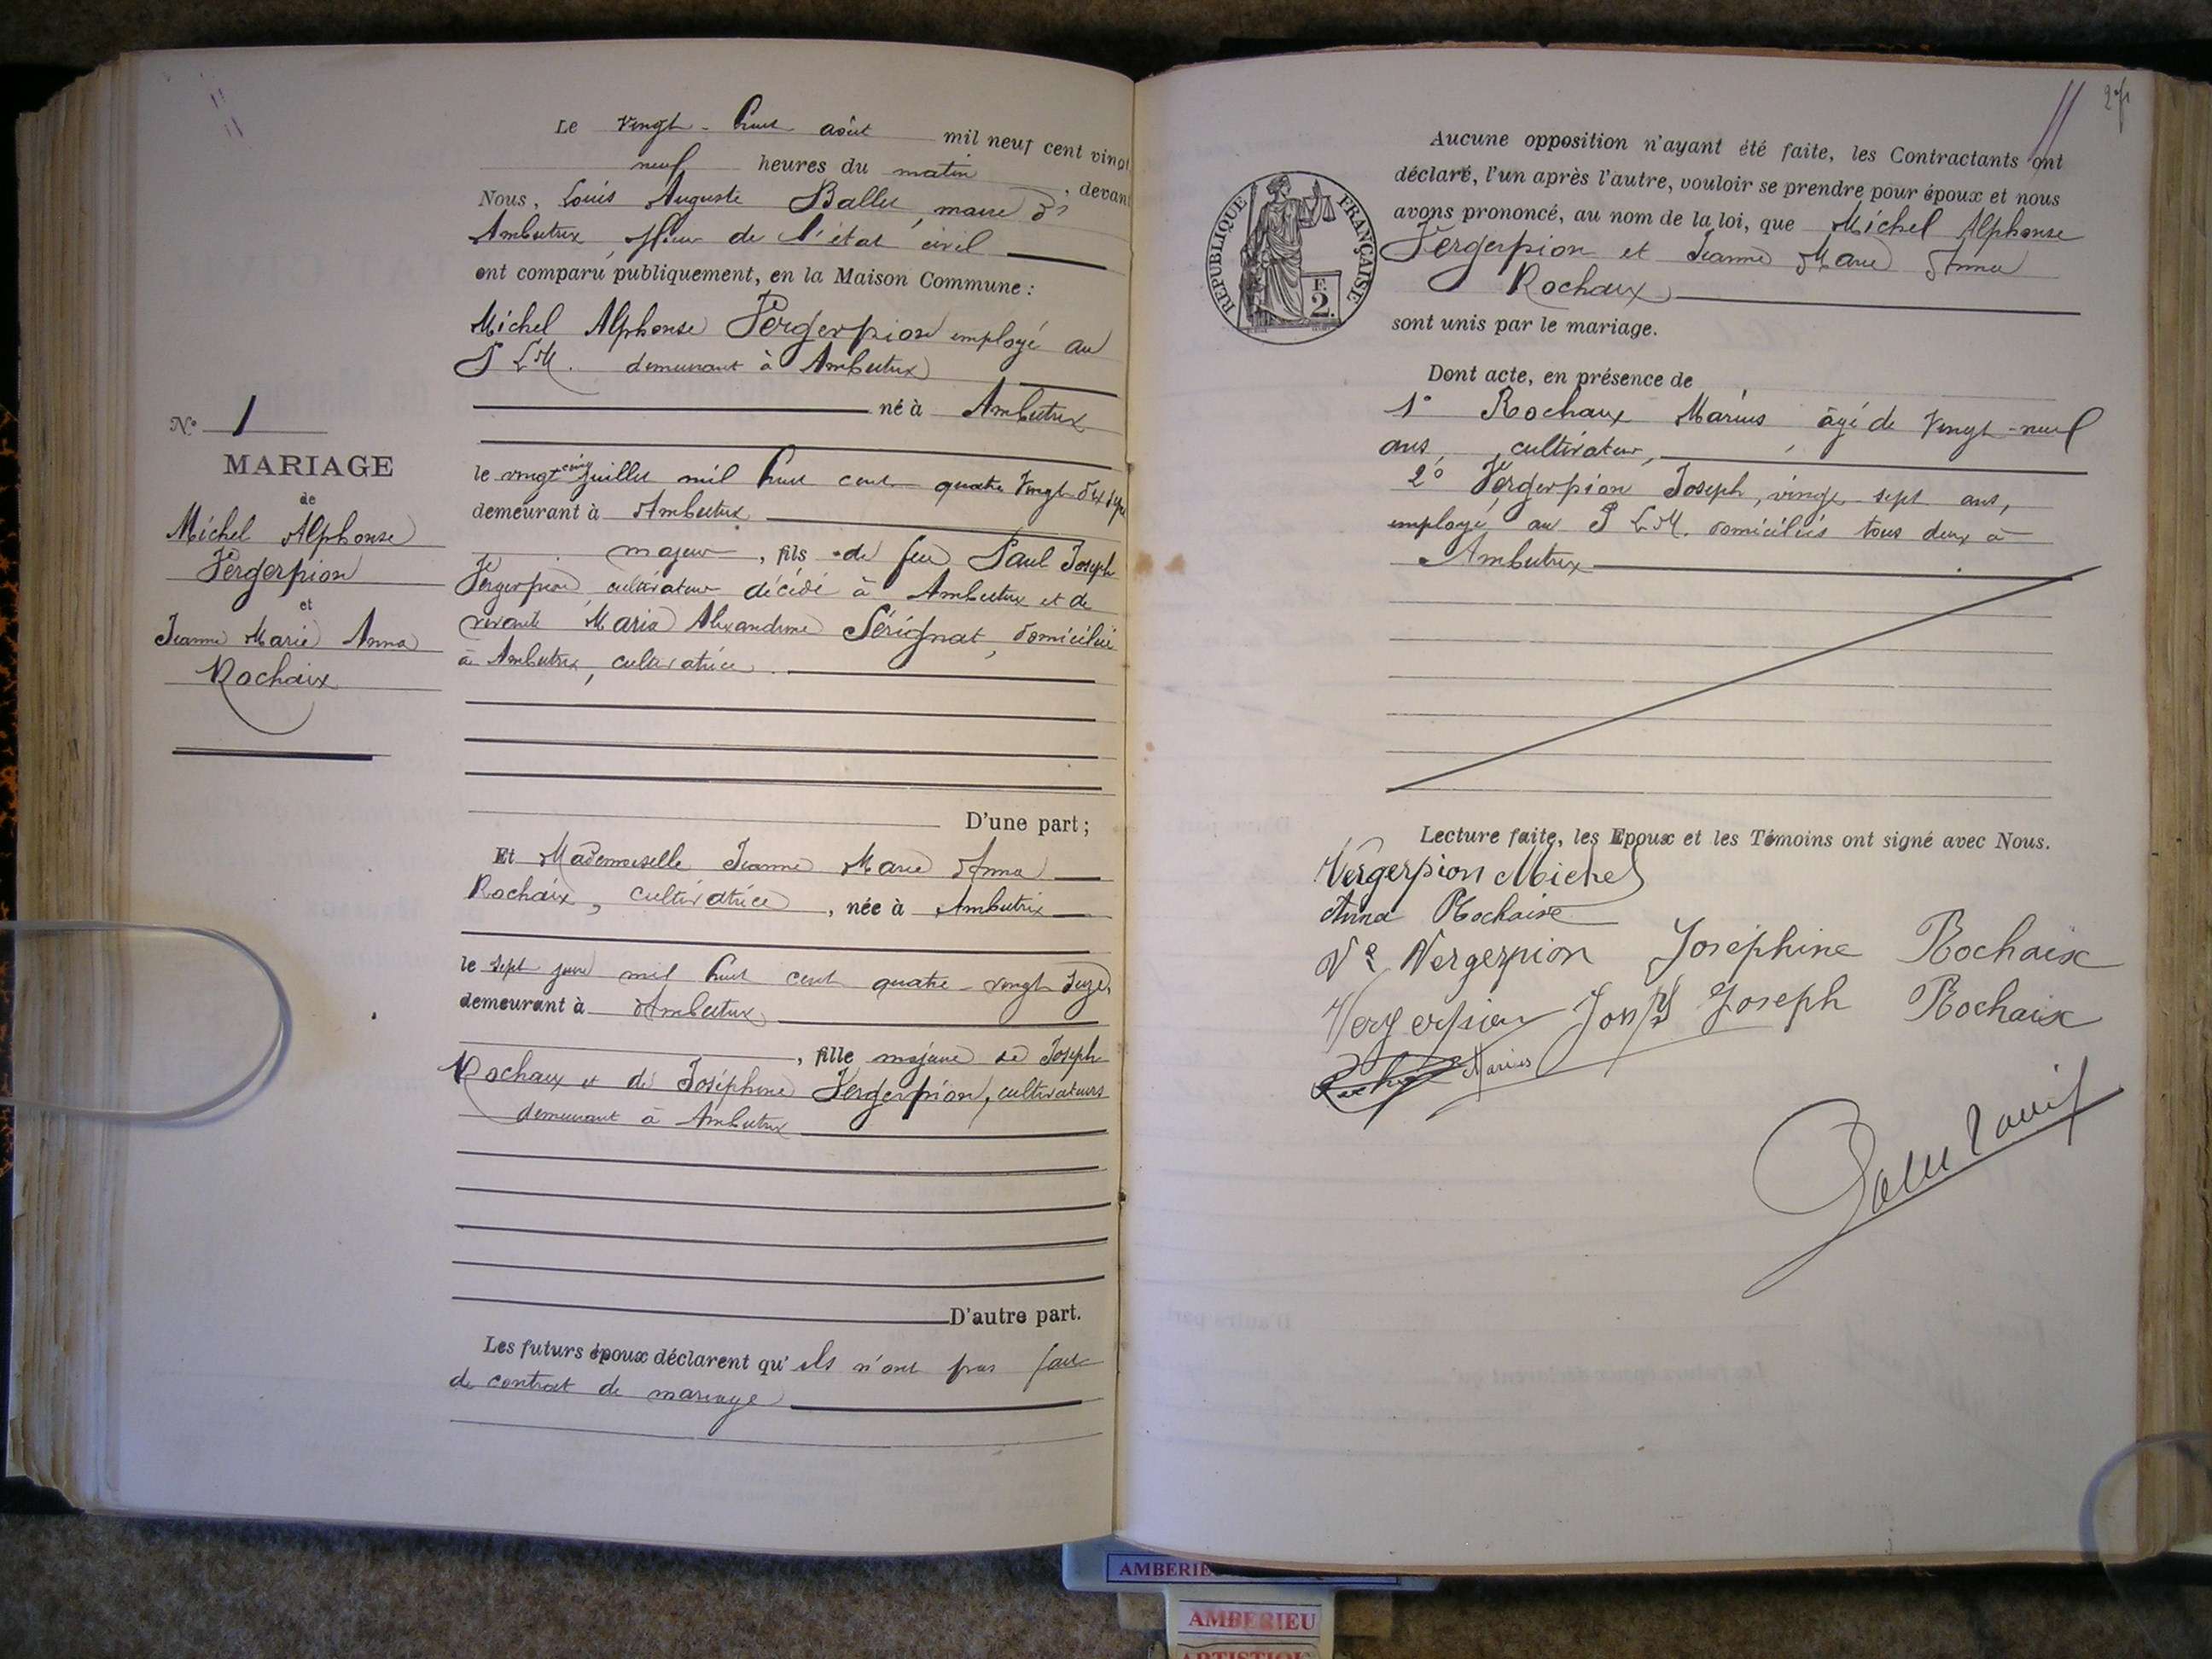 Le vingt-huit août mil neuf cent vingt
neuf heures du matin, devant
Nous, Louis Auguste Ballet, maire d'
Ambutrix, officier de l'état civil
ont comparu publiquement, en la Maison Commune :
Michel Alphonse Vergerpion employé au
P. L. M. demeurant à Ambutrix
né à Ambutrix
le vingt cinq juillet mil huit cent quatre vingt dix sept
demeurant à Ambutrix
majeur, fils de feu Paul Joseph
Vergerpion cultivateur décédé à Ambutrix et de
vivante Maria Alexandrine Sérignat, domiciliée
à Ambutrix, cultivatrice
D'une part ;
Et Mademoiselle Jeanne Marie Anna
Rochaix, cultivatrice, née à Ambutrix
le sept juin mil huit cent quatre-vingt seize,
demeurant à Ambutrix
, fille majeure de Joseph
Rochaix et de Joséphine Vergerpion, cultivateurs
demeurant à Ambutrix
D'autre part.
Les futurs époux déclarent qu'ils n'ont pas fait
de contrat de mariage
N° 1
MARIAGE
de
Michel Alphonse
Vergerpion
et
Jeanne Marie Anna
Rochaix
27
Aucune opposition n'ayant été faite, les Contractants ont
déclaré, l'un après l'autre, vouloir se prendre pour époux et nous
avons prononcé, au nom de la loi, que Michel Alphonse
Vergerpion et Jeanne Marie Anna
Rochaix
sont unis par le mariage.
RÉPUBLIQUE FRANÇAISE
F.
2.
Dont acte, en présence de
1° Rochaix Marius, âgé de vingt-neuf
ans, cultivateur,
2° Vergerpion Joseph, vingt-sept ans,
employé au P. L. M. domiciliés tous deux à
Ambutrix
Lecture faite, les Epoux et les Témoins ont signé avec Nous.
Vergerpion Michel
Anna Rochaix
Ve Vergerpion Joséphine Rochaix
Vergerpion Joseph Joseph Rochaix
Marius
Ballet Louis
AMBERIE
AMBERIEU